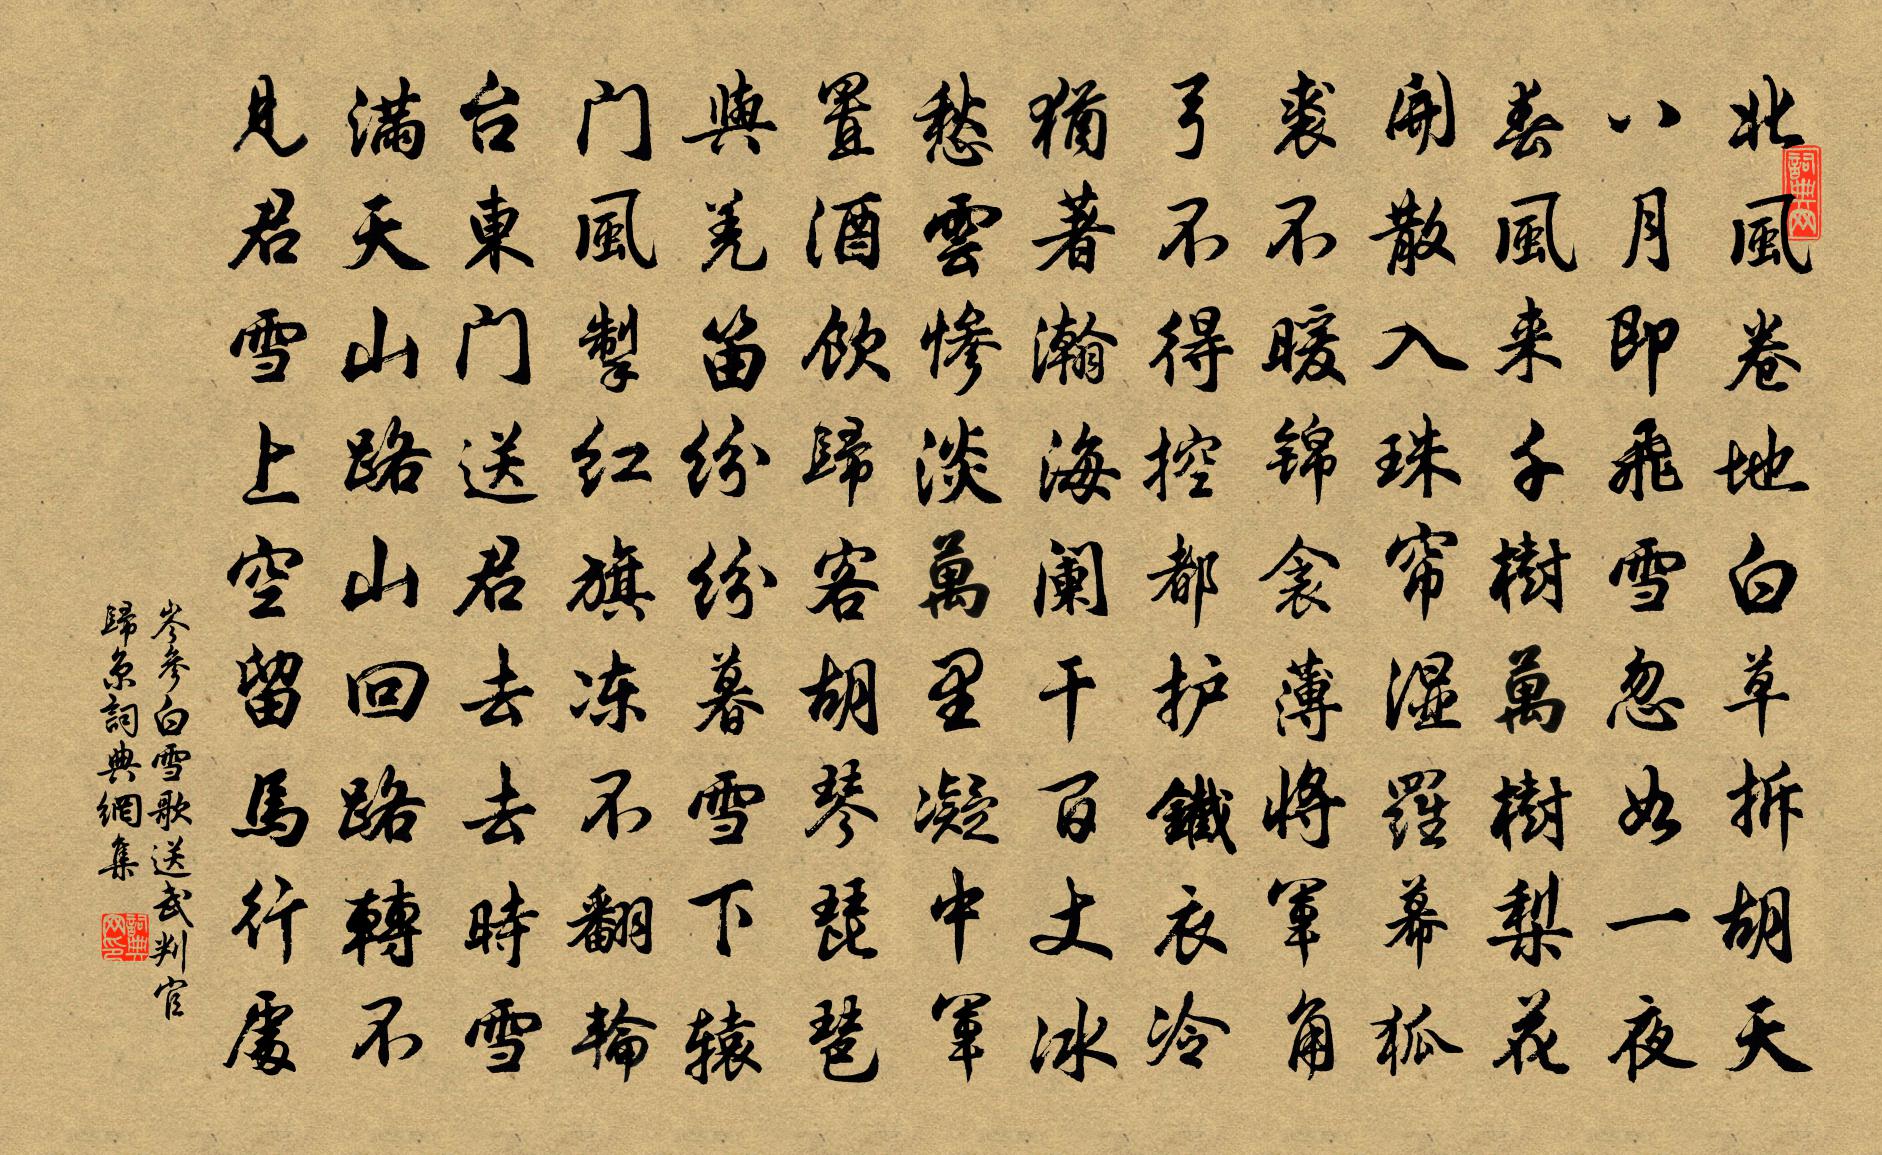 北風卷地白草拆胡天
八月即飛雪忽如一夜
春風来千樹萬樹梨花
開散入珠帘湿羅幕狐
裘不暖锦衾薄將軍角
弓不得控都护鐵衣冷
猶著瀚海阑干百丈冰
愁雲惨淡萬里凝中軍
置酒飲歸客胡琴琵琶
與羌笛纷纷暮雪下辕
门風掣红旗冻不翻輪
台東门送君去去時雪
满天山路山回路轉不
見君雪上空留馬行處
岑參白雪歌送武判官
歸京詞典網集
詞典网
詞典网印